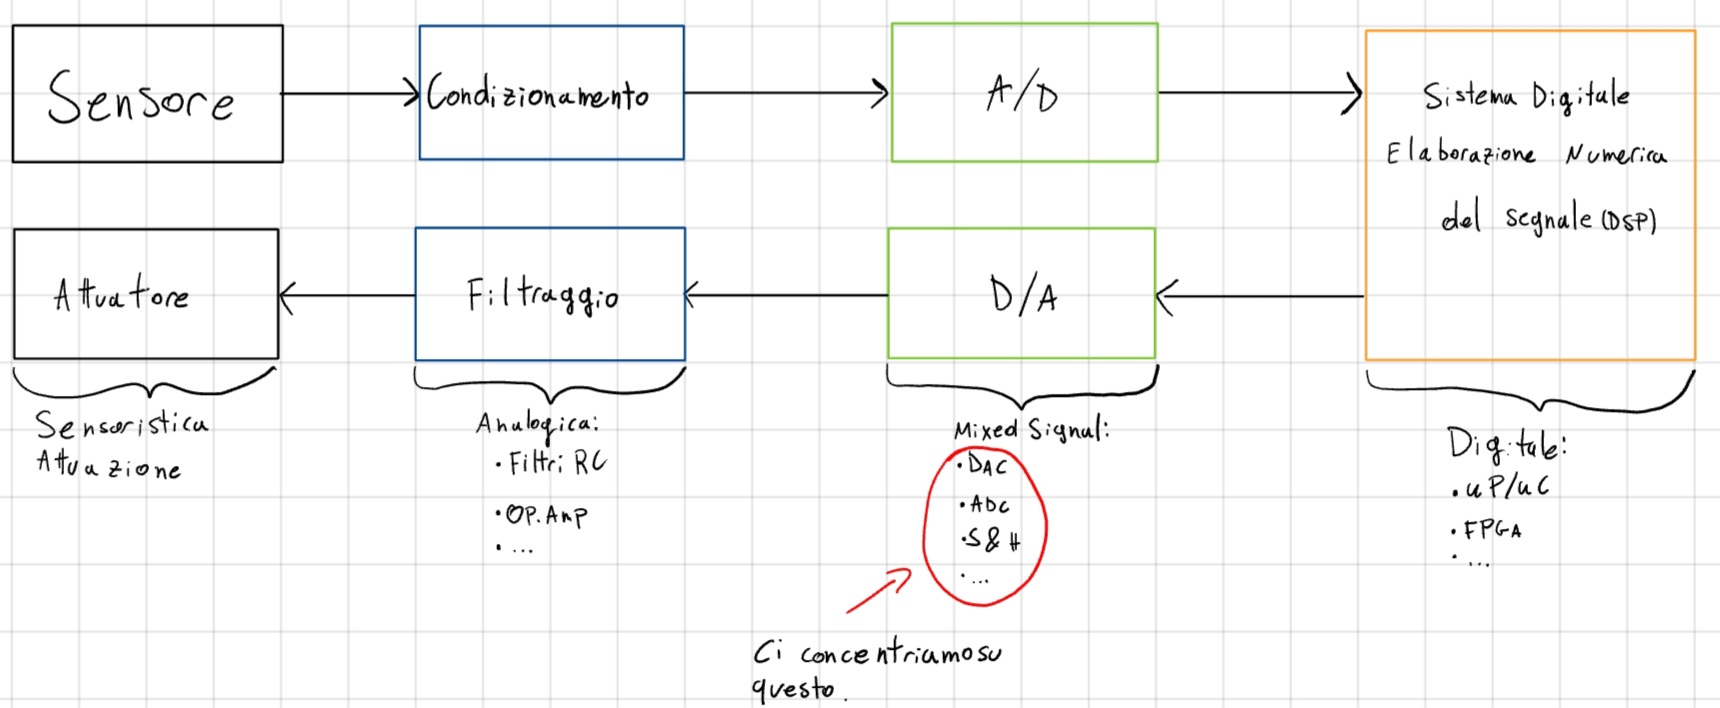 Sensore
Condizionamento
A/D
Sistema Digitale
Elaborazione Numerica
del segnale (DSP)
Attuatore
Filtraggio
D/A
Sensoristica
Attuazione
Analogica:
• Filtri RC
• OP. Amp
• ...
Mixed Signal:
• DAC
• ADC
• S & H
• ...
Digitale:
• uP/uC
• FPGA
• ...
Ci concentriamo su
questo.